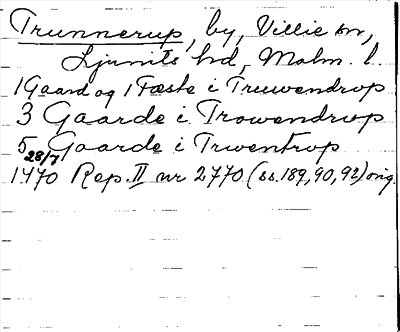 Trunnerup, by, Villie sn,
Ljunits hd, Malm. l.
1 Gaard og 1 Fæste i Truwendrop
3 Gaarde i Trowendrup
5 Gaarde i Trwentrop
28/7
1470 Rep. II nr 2770 (ss. 189, 90, 92) orig.